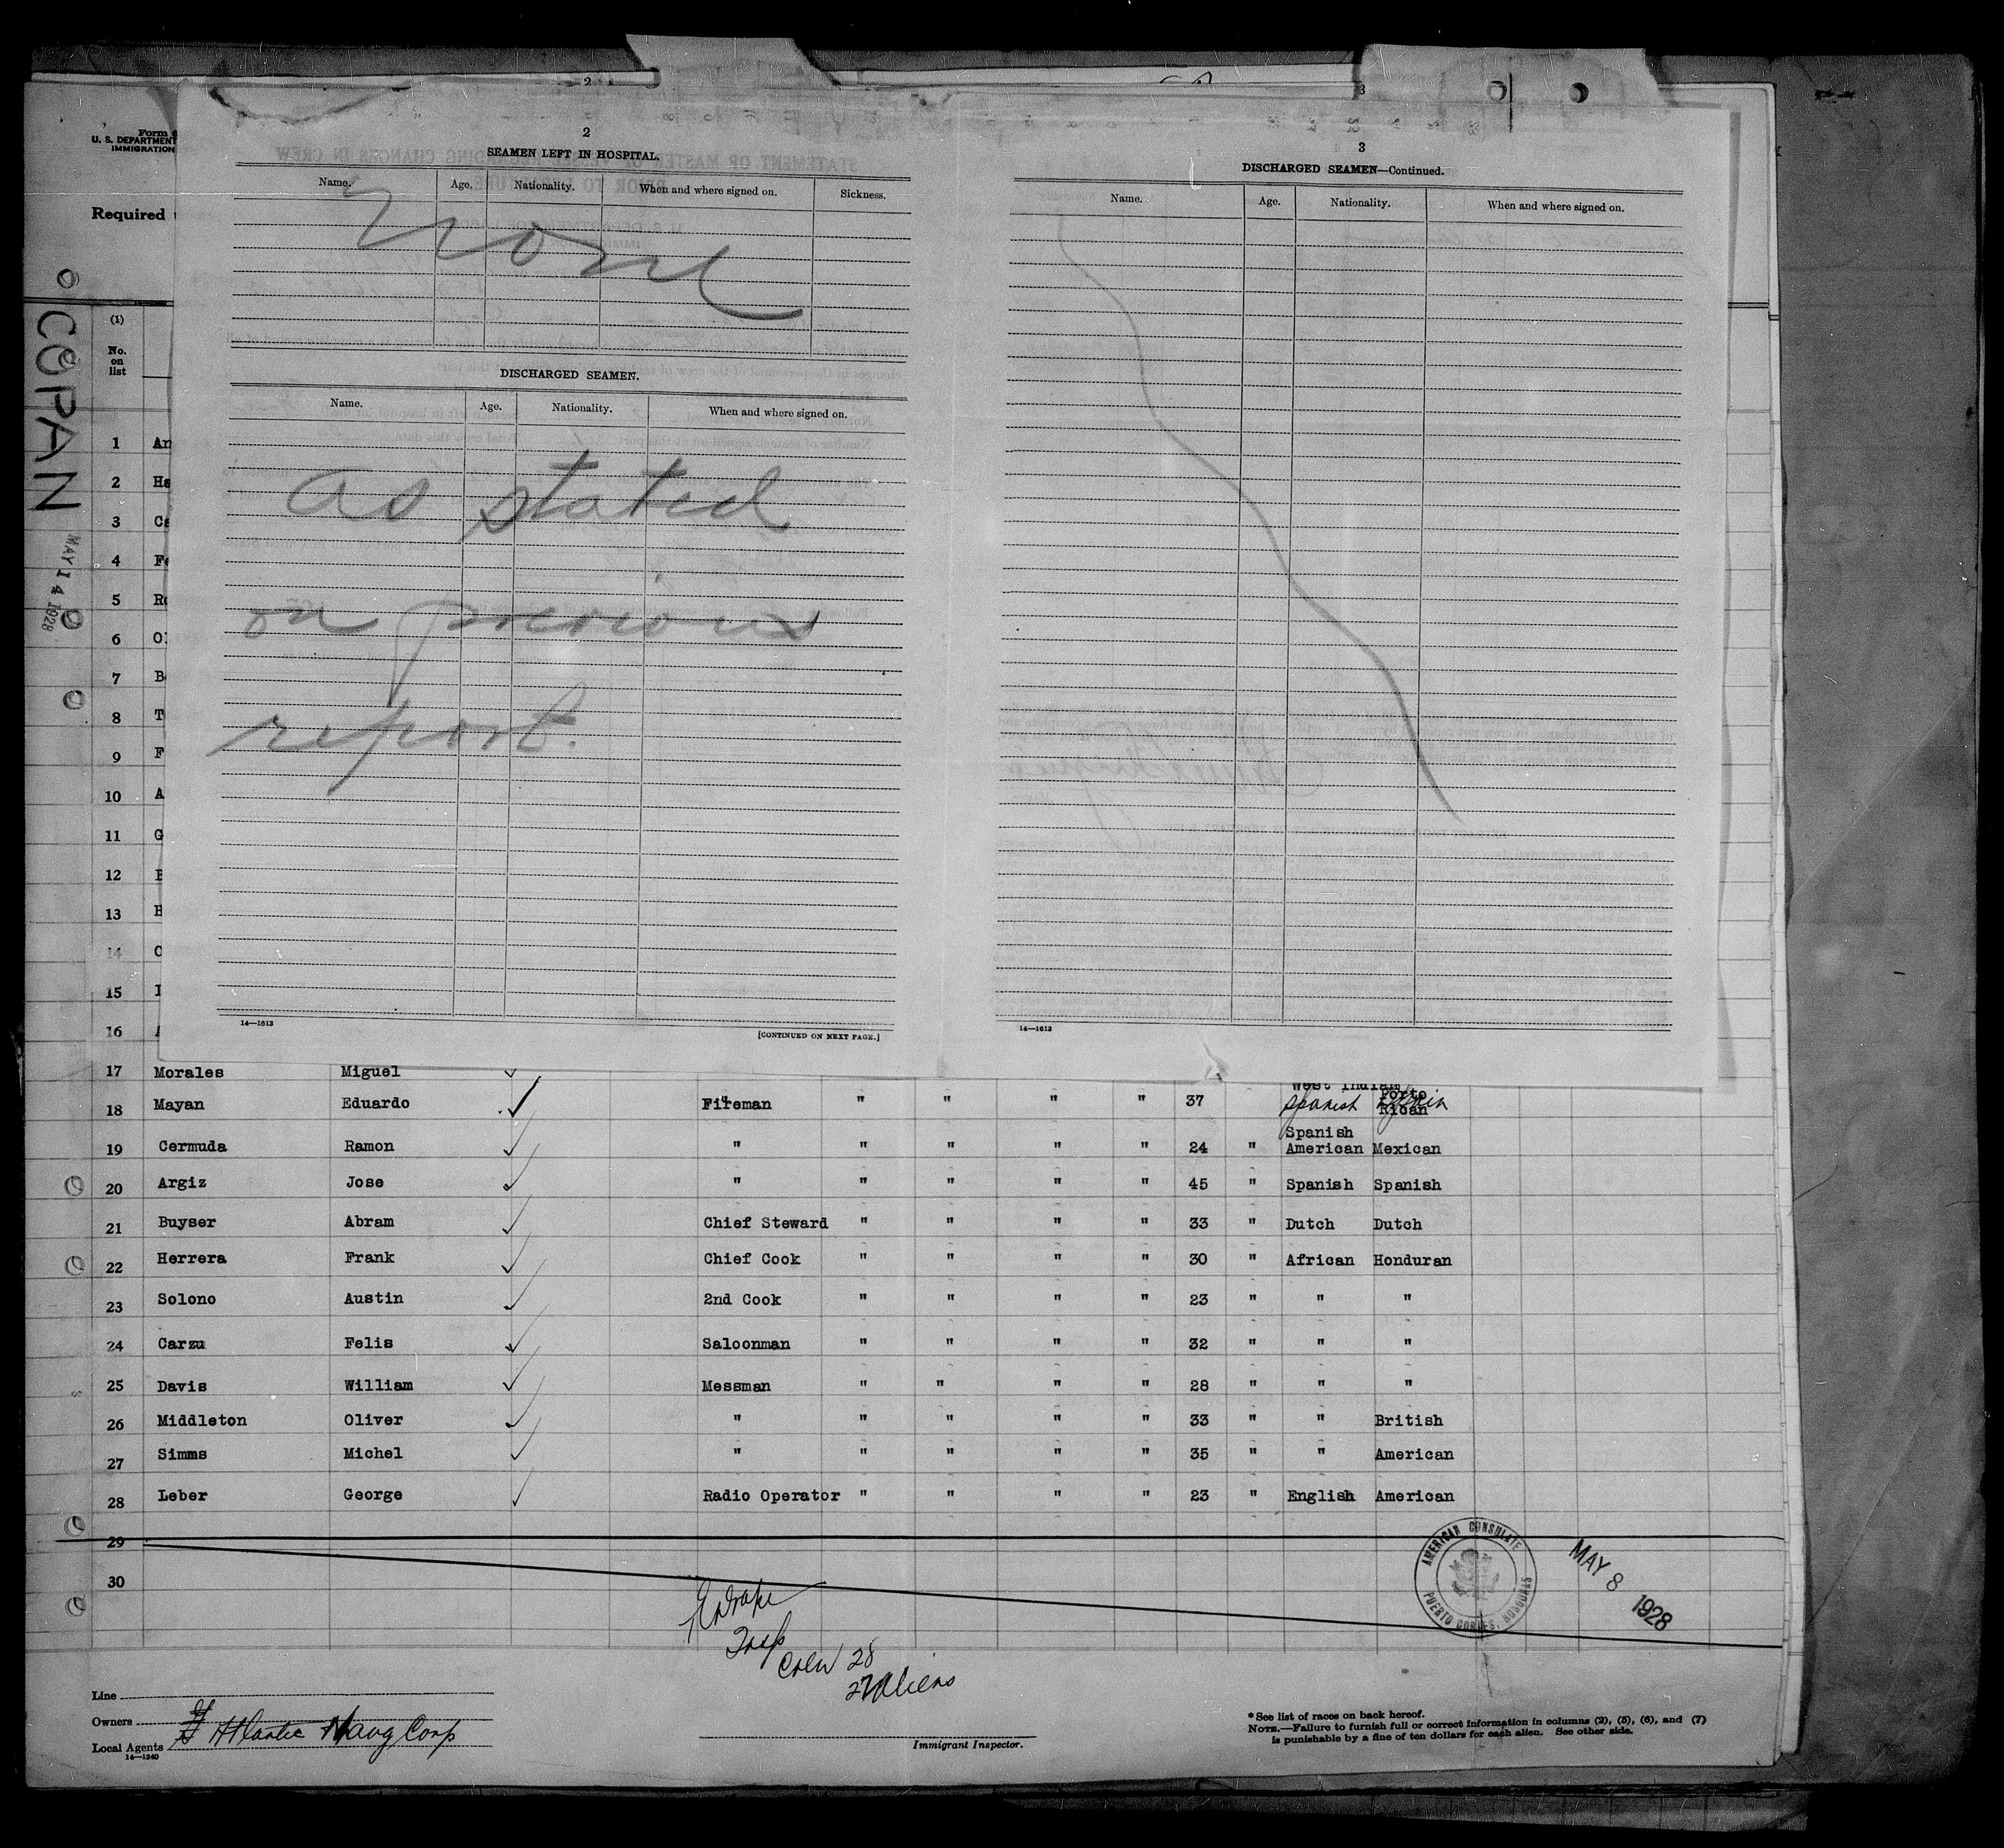 2
3
2
SEAMEN LEFT IN HOSPITAL.
Name. Age. Nationality. When and where signed on. Sickness.
None
DISCHARGED SEAMEN.
Name. Age. Nationality. When and where signed on.
as stated
on previous
report.
14—1613
[CONTINUED ON NEXT PAGE.]
3
DISCHARGED SEAMEN—Continued.
Name. Age. Nationality. When and where signed on.
14—1613
Form
U. S. DEPARTMENT
IMMIGRATION
Required
COPAN
MAY 14 1928
(1)
No.
on
list
1 An
2 Ha
3 Ca
4 Fe
5 Ro
6 Ol
7 Be
8 T
9 F
10 A
11 G
12
13 H
14
15
16
17 Morales Miguel
West Indian
18 Mayan Eduardo Fireman " " " " 37 Spanish Porto Rican
19 Cermuda Ramon " " " " " 24 " Spanish American Mexican
20 Argiz Jose " " " " " 45 " Spanish Spanish
21 Buyser Abram Chief Steward " " " " 33 " Dutch Dutch
22 Herrera Frank Chief Cook " " " " 30 " African Honduran
23 Solono Austin 2nd Cook " " " " 23 " " "
24 Carzu Felis Saloonman " " " " 32 " " "
25 Davis William Messman " " " " 28 " " "
26 Middleton Oliver " " " " " 33 " " British
27 Simms Michel " " " " " 35 " " American
28 Leber George Radio Operator " " " " 23 " English American
29
30
AMERICAN CONSULATE
PUERTO CORTES, HONDURAS
MAY 8 1928
Insp
Crew 28
27 Aliens
Line
Owners
Local Agents Atlantic Navg Corp
14—1240
Immigrant Inspector.
*See list of races on back hereof.
NOTE.—Failure to furnish full or correct information in columns (2), (5), (6), and (7)
is punishable by a fine of ten dollars for each alien. See other side.